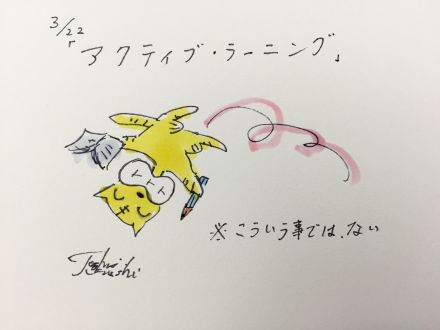 3/22
「アクティブ・ラーニング」
※こういう事では、ない